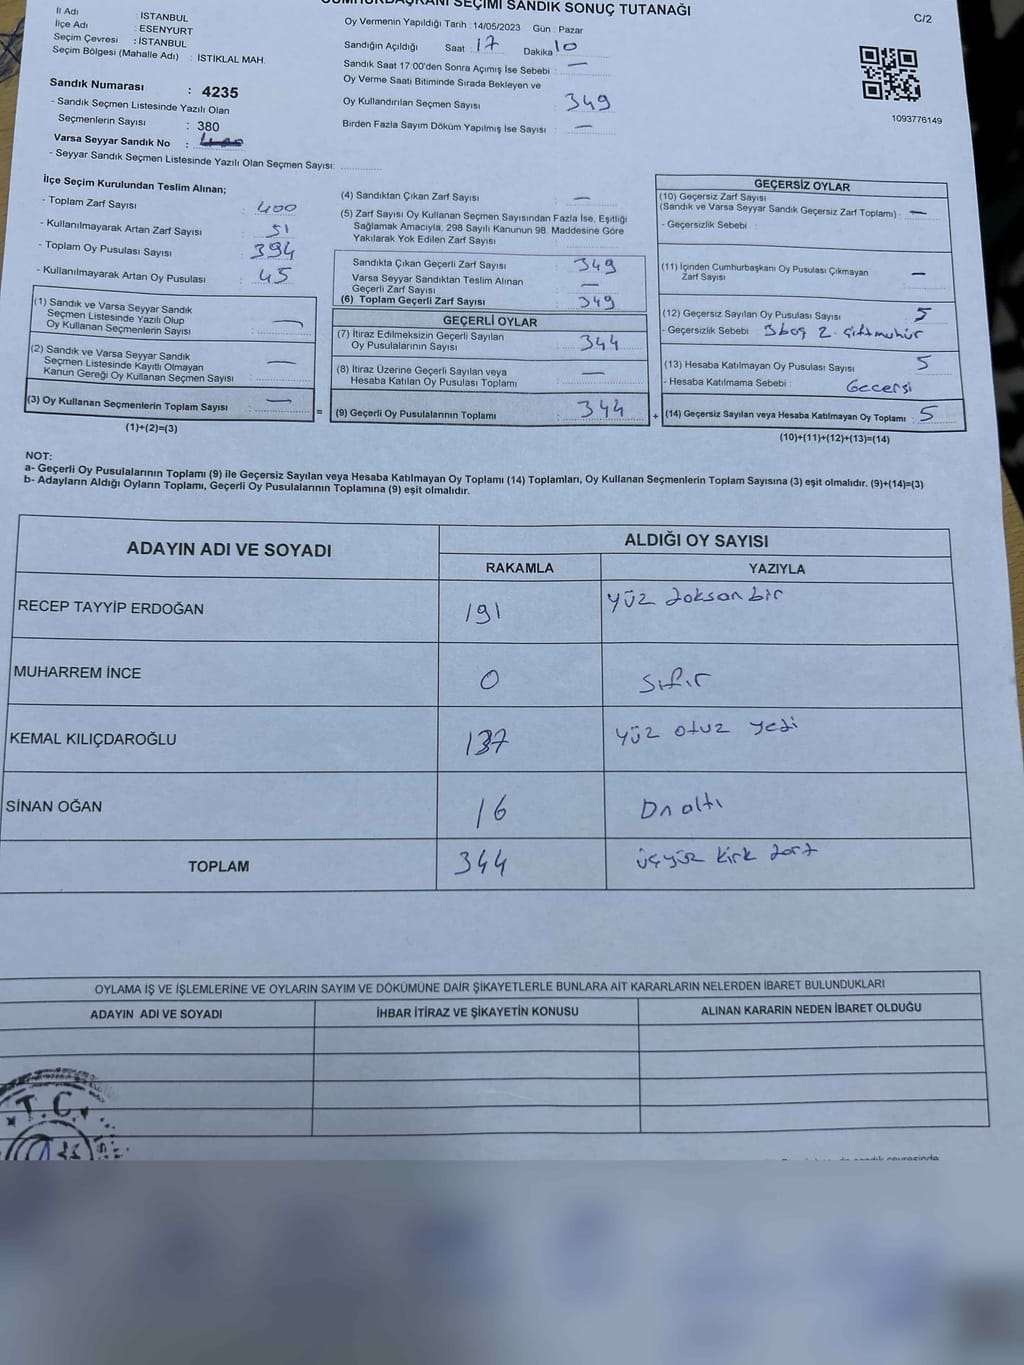 CUMHURBAŞKANI SEÇİMİ SANDIK SONUÇ TUTANAĞI
C/2
İl Adı : İSTANBUL
İlçe Adı : ESENYURT
Seçim Çevresi : İSTANBUL
Seçim Bölgesi (Mahalle Adı) : İSTİKLAL MAH.
Sandık Numarası : 4235
- Sandık Seçmen Listesinde Yazılı Olan
Seçmenlerin Sayısı : 380
Varsa Seyyar Sandık No :
- Seyyar Sandık Seçmen Listesinde Yazılı Olan Seçmen Sayısı:
Oy Vermenin Yapıldığı Tarih : 14/05/2023 Gün : Pazar
Sandığın Açıldığı Saat : 17 Dakika 10
Sandık Saat 17:00'den Sonra Açımış İse Sebebi : —
Oy Verme Saati Bitiminde Sırada Bekleyen ve
Oy Kullandırılan Seçmen Sayısı : 349
Birden Fazla Sayım Döküm Yapılmış İse Sayısı : —
1093776149
İlçe Seçim Kurulundan Teslim Alınan;
- Toplam Zarf Sayısı : 400
- Kullanılmayarak Artan Zarf Sayısı : 51
- Toplam Oy Pusulası Sayısı : 394
- Kullanılmayarak Artan Oy Pusulası : 45
(1) Sandık ve Varsa Seyyar Sandık
Seçmen Listesinde Yazılı Olup
Oy Kullanan Seçmenlerin Sayısı : —
(2) Sandık ve Varsa Seyyar Sandık
Seçmen Listesinde Kayıtlı Olmayan
Kanun Gereği Oy Kullanan Seçmen Sayısı : —
(3) Oy Kullanan Seçmenlerin Toplam Sayısı : —
(1)+(2)=(3)
(4) Sandıktan Çıkan Zarf Sayısı : —
(5) Zarf Sayısı Oy Kullanan Seçmen Sayısından Fazla İse, Eşitliği
Sağlamak Amacıyla; 298 Sayılı Kanunun 98. Maddesine Göre
Yakılarak Yok Edilen Zarf Sayısı :
Sandıkta Çıkan Geçerli Zarf Sayısı : 349
Varsa Seyyar Sandıktan Teslim Alınan
Geçerli Zarf Sayısı : —
(6) Toplam Geçerli Zarf Sayısı : 349
GEÇERLİ OYLAR
(7) İtiraz Edilmeksizin Geçerli Sayılan
Oy Pusulalarının Sayısı : 344
(8) İtiraz Üzerine Geçerli Sayılan veya
Hesaba Katılan Oy Pusulası Toplamı : —
= (9) Geçerli Oy Pusulalarının Toplamı : 344
GEÇERSİZ OYLAR
(10) Geçersiz Zarf Sayısı
(Sandık ve Varsa Seyyar Sandık Geçersiz Zarf Toplamı) : —
- Geçersizlik Sebebi :
(11) İçinden Cumhurbaşkanı Oy Pusulası Çıkmayan
Zarf Sayısı : —
(12) Geçersiz Sayılan Oy Pusulası Sayısı : 5
- Geçersizlik Sebebi : 3boş 2. çift mühür
(13) Hesaba Katılmayan Oy Pusulası Sayısı : 5
- Hesaba Katılmama Sebebi : Gecersi
+ (14) Geçersiz Sayılan veya Hesaba Katılmayan Oy Toplamı : 5
(10)+(11)+(12)+(13)=(14)
NOT:
a- Geçerli Oy Pusulalarının Toplamı (9) ile Geçersiz Sayılan veya Hesaba Katılmayan Oy Toplamı (14) Toplamları, Oy Kullanan Seçmenlerin Toplam Sayısına (3) eşit olmalıdır. (9)+(14)=(3)
b- Adayların Aldığı Oyların Toplamı, Geçerli Oy Pusulalarının Toplamına (9) eşit olmalıdır.
ADAYIN ADI VE SOYADI ALDIĞI OY SAYISI
RAKAMLA YAZIYLA
RECEP TAYYİP ERDOĞAN 191 yüz doksan bir
MUHARREM İNCE 0 sıfır
KEMAL KILIÇDAROĞLU 137 yüz otuz yedi
SİNAN OĞAN 16 Onaltı
TOPLAM 344 üçyüz kirk dört
OYLAMA İŞ VE İŞLEMLERİNE VE OYLARIN SAYIM VE DÖKÜMÜNE DAİR ŞİKAYETLERLE BUNLARA AİT KARARLARIN NELERDEN İBARET BULUNDUKLARI
ADAYIN ADI VE SOYADI İHBAR İTİRAZ VE ŞİKAYETİN KONUSU ALINAN KARARIN NEDEN İBARET OLDUĞU
T.C.